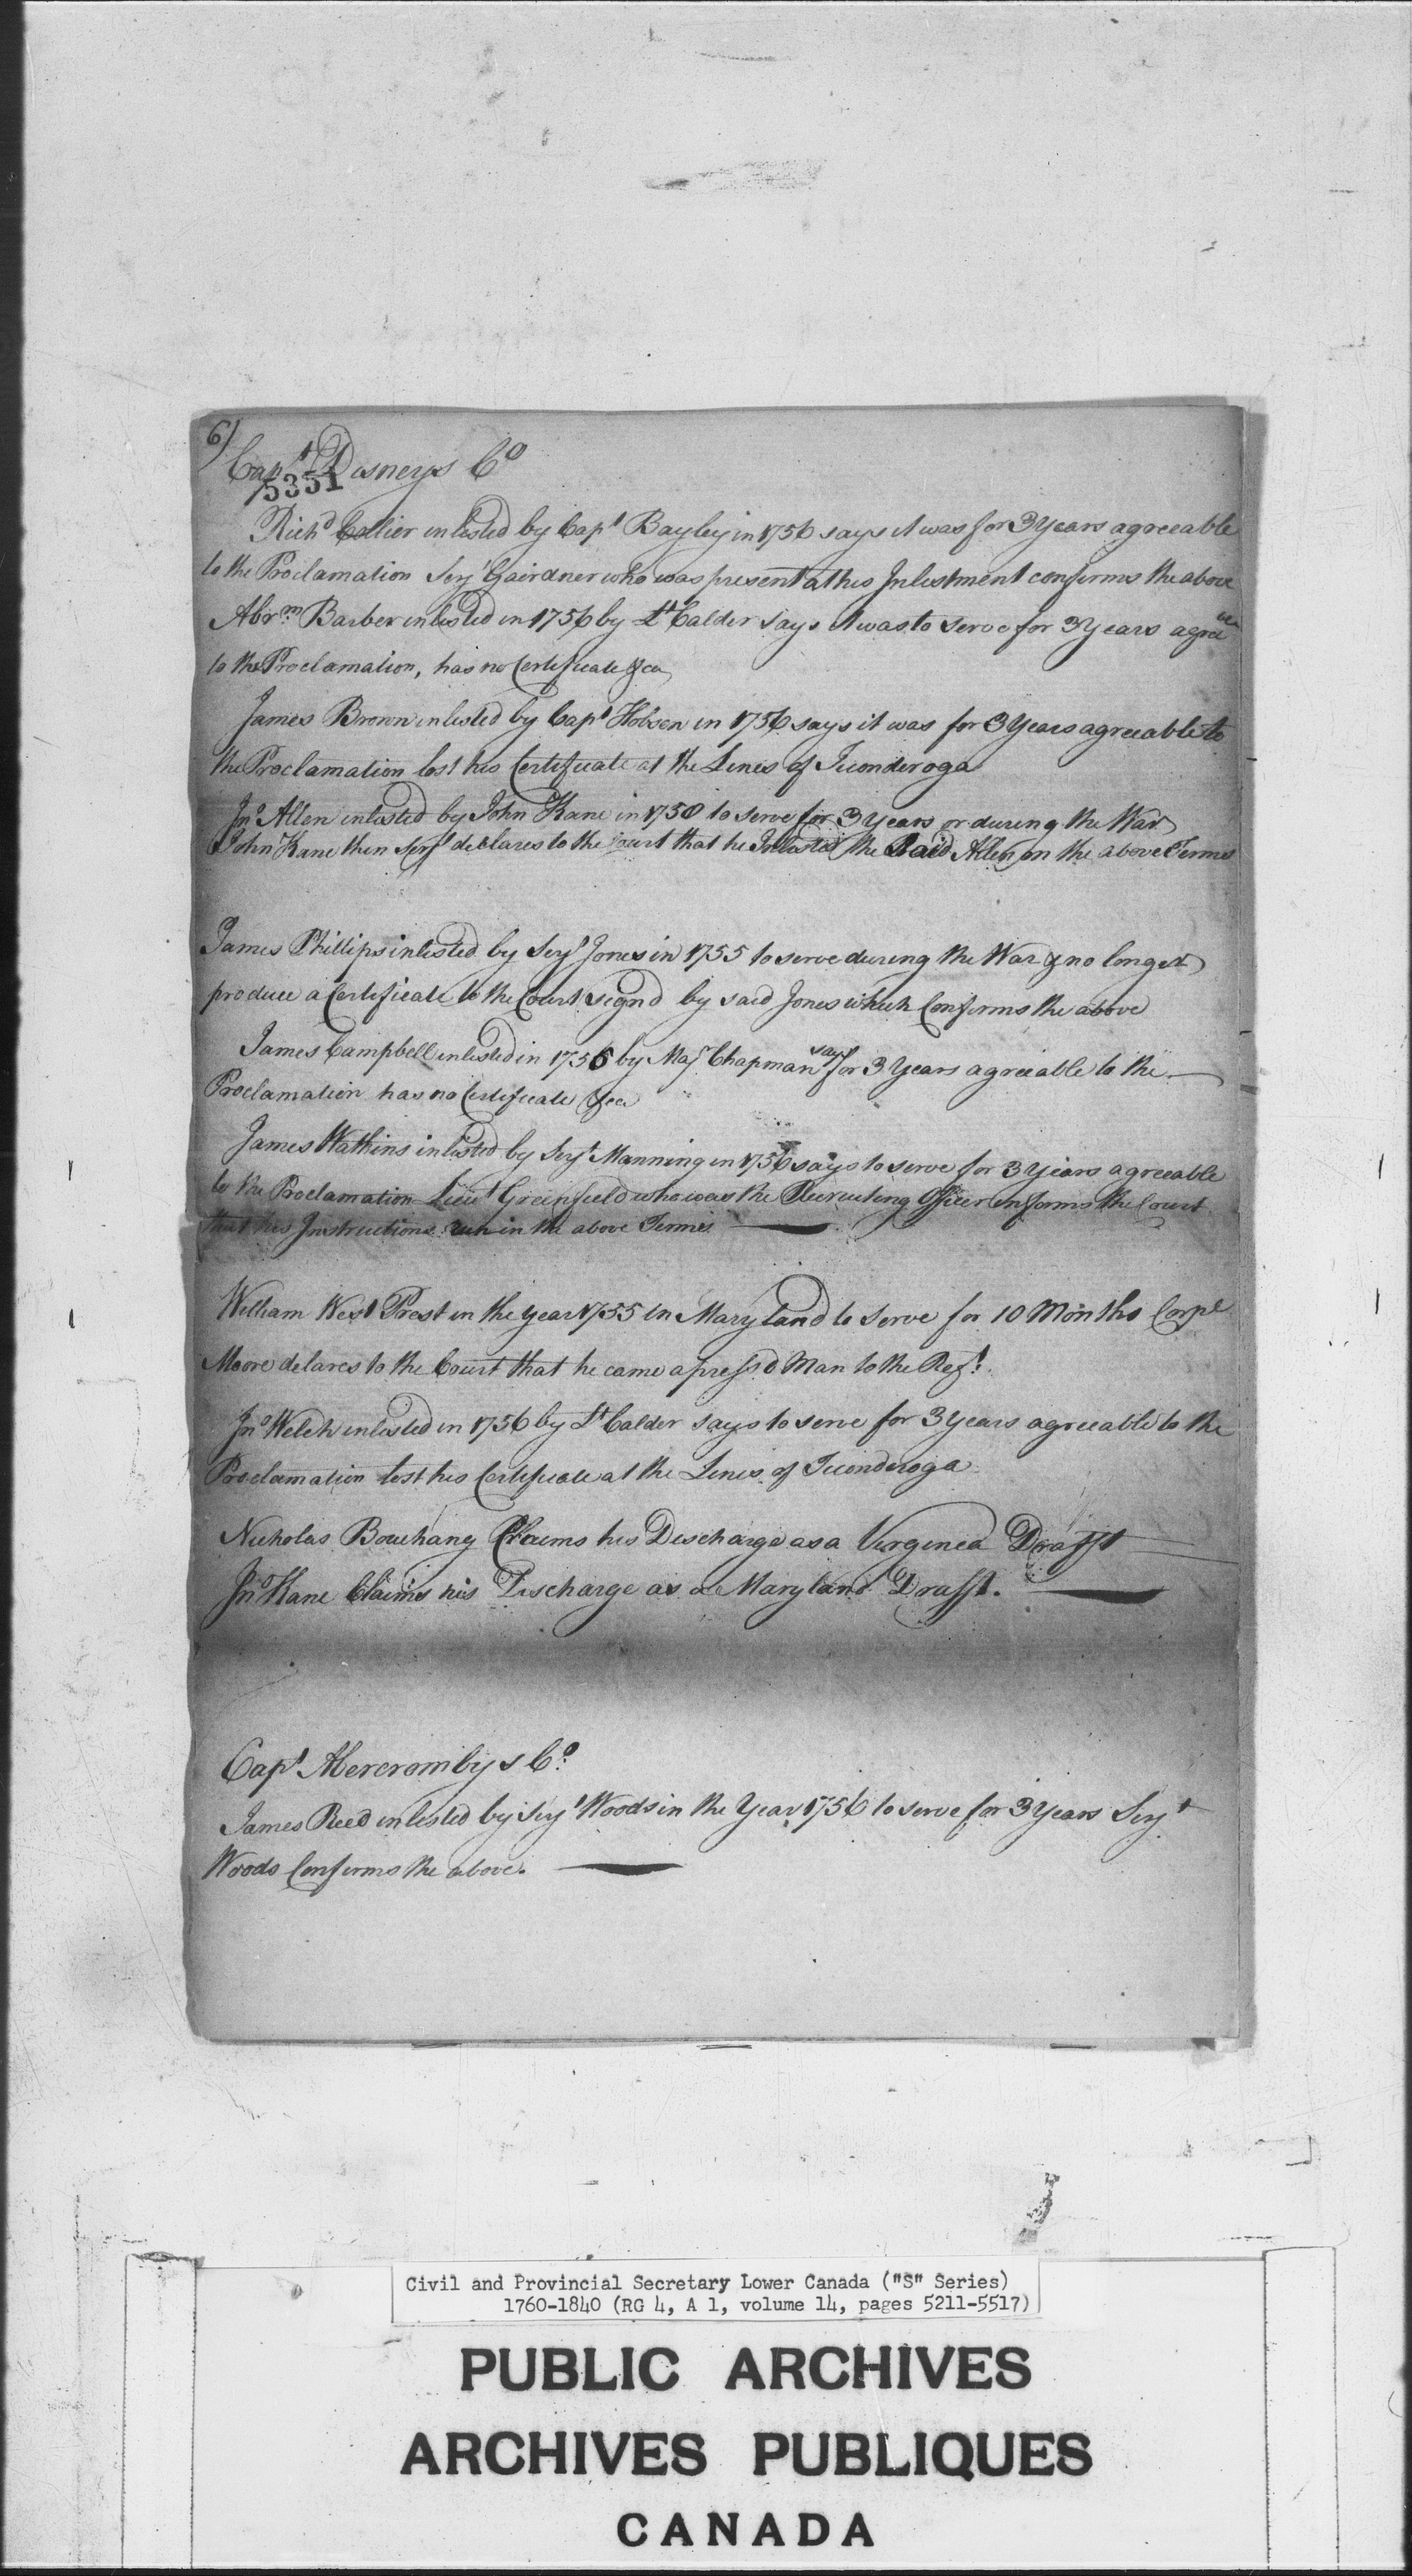 6)
Capt Disneys Co
5351
Richd Collier inlisted by Capt Bayley in 1756 says it was for 3 Years agreeable
to the Proclamation Serjt Gairdner who was present at his Inlistment confirms the above
Abrm Barber inlisted in 1756 by Lt Calder says it was to serve for 3 Years agree
to the Proclamation, has no Certificate &ca
James Brown inlisted by Capt Hobsen in 1756 says it was for 3 Years agreeable to
the Proclamation lost his Certificate at the Lines of Ticonderoga
Jno Allen inlisted by John Kane in 1758 to serve for 3 Years or during the War
John Kane then Serjt declares to the Court that he Inlisted the Said Allen on the above Terms
James Phillips inlisted by Serjt Jones in 1755 to serve during the War & no longer
produce a Certificate to the Court signd by said Jones which Confirms the above
James Campbell inlisted in 1756 by Majr Chapman says for 3 Years agreeable to the
Proclamation has no Certificate &ca
James Watkins inlisted by Serjt Manning in 1756 says to serve for 3 Years agreeable
to the Proclamation Lieut Greenfield who was the Recruiting Officer informs the Court
that his Instructions run in the above Terms
William West Prest in the year 1755 in Maryland to serve for 10 Months Corpl
Moore delares to the Court that he came a press'd Man to the Regt.
Jno Welch inlisted in 1756 by Lt Calder says to serve for 3 Years agreeable to the
Proclamation lost his Certificate at the Lines of Ticonderoga
Nicholas Bouchang Claims his Discharge as a Virginea Drafft
Jno Kane Claims his Discharge as a Maryland Drafft.
Capt Abercrombys Co.
James Reed inlisted by Serjt Woods in the Year 1756 to serve for 3 Years Serjt
Woods Confirms the above.
Civil and Provincial Secretary Lower Canada ("S" Series)
1760-1840 (RG 4, A 1, volume 14, pages 5211-5517)
PUBLIC ARCHIVES
ARCHIVES PUBLIQUES
CANADA